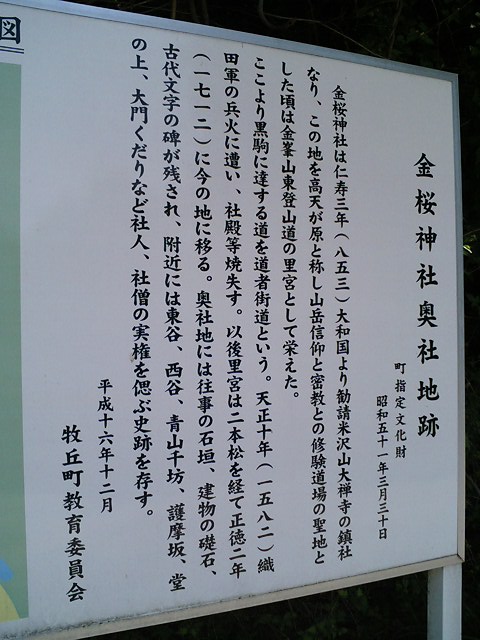 図
金桜神社奥社地跡
町指定文化財
昭和五十一年三月三十日
金桜神社は仁寿三年（八五三）大和国より勧請米沢山大禅寺の鎮社
なり、この地を高天が原と称し山岳信仰と密教との修験道場の聖地と
した頃は金峯山東登山道の里宮として栄えた。
ここより黒駒に達する道を道者街道という。天正十年（一五八二）織
田軍の兵火に遭い、社殿等焼失す。以後里宮は二本松を経て正徳二年
（一七一二）に今の地に移る。奥社地には往事の石垣、建物の礎石、
古代文字の碑が残され、附近には東谷、西谷、青山千坊、護摩坂、堂
の上、大門くだりなど社人、社僧の実権を偲ぶ史跡を存す。
平成十六年十二月
牧丘町教育委員会